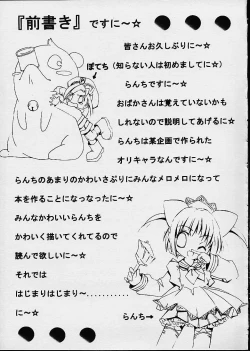 『前書き』ですに～☆
皆さんお久しぶりに～☆
ぽてち
(知らない人は初めましてに☆)
らんちですに☆
おばかさんは覚えていないかも
しれないので説明してあげるに☆
らんちは某企画で作られた
オリキャラなんですに～☆
らんちのあまりのかわいさぶりにみんなメロメロになって
本を作ることになったに～☆
みんなかわいいらんちを
かわいく描いてくれてるので
読んで欲しいに～☆
それでは
はじまりはじまり～............
に～☆
らんち→